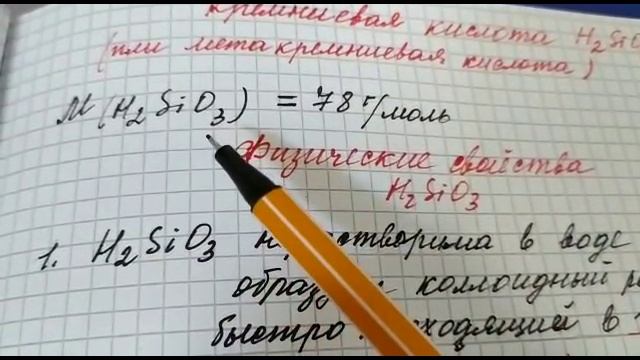 кремниевая кислота H₂SiO
(или метакремниевая кислота)
M(H₂SiO₃) = 78 г/моль
Физические свойства
H₂SiO₃
1. H₂SiO₃ в воде
коллоидный
быстро в